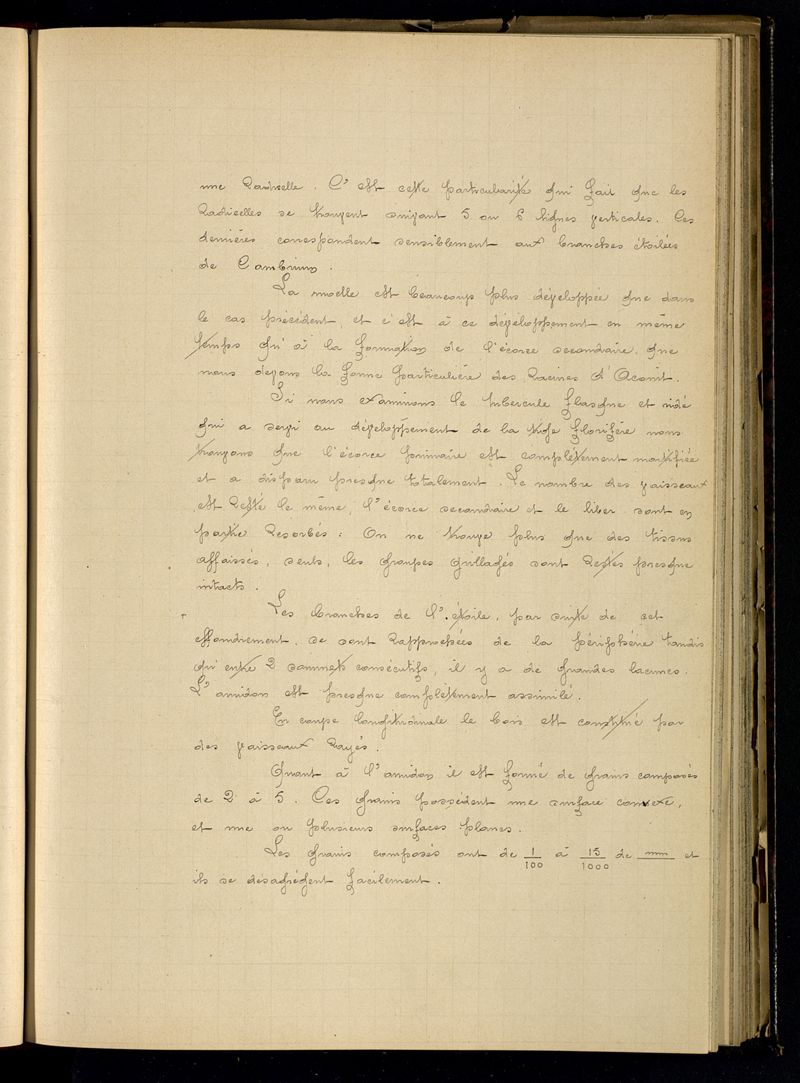 une Radicelle. C'est cette particularité qui fait que les
Radicelles se trouvent suivant 5 ou 6 lignes verticales. Ces
dernières correspondent sensiblement aux branches étoilées
de Cambium.
La moelle est beaucoup plus développée que dans
le cas précédent, et c'est à ce développement en même
temps qu'à la formation de l'écorce secondaire, que
nous devons la forme particulière des Racines d'Aconit.
Si nous examinons le tubercule flasque et ridé
qui a servi au développement de la tige florifère nous
trouvons que l'écorce primaire est complètement mortifiée
et a disparu presque totalement. Le nombre des vaisseaux
est Resté le même, l'écorce secondaire et le liber sont en
partie Resorbés : On ne trouve plus que des tissus
affaissés, seuls, les groupes grillagés sont Restés presque
intacts.
Les branches de l'étoile, par suite de cet
effondrement, se sont Rapprochées de la périphérie tandis
qu'entre 2 sommets consécutifs, il y a de grandes lacunes.
L'amidon est presque complètement assimilé.
En coupe longitudinale le bois est constitué par
des vaisseaux Rayés.
Quant à l'amidon il est formé de grains composés
de 2 à 5. Ces grains possèdent une surface convexe,
et une ou plusieurs surfaces planes.
Les grains composés ont de 1/100 à 15/1000 de mm et
ils se désagrègent facilement.